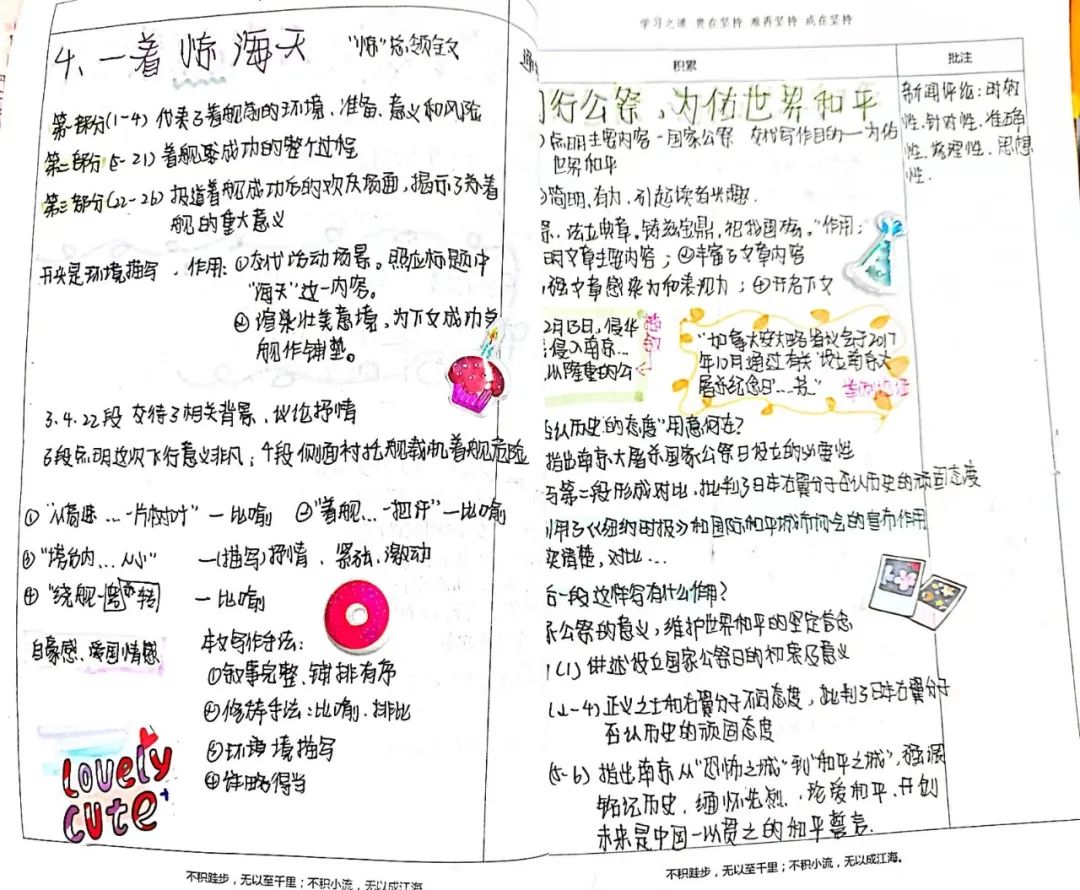 4、一着惊海天 "惊"总领全文
第一部分(1-4) 交代了着舰前的环境、准备、意义和风险
第二部分(5-21) 着舰要成功的整个过程
第三部分(22-26) 报道着舰成功后的欢庆场面,揭示了着
舰的重大意义
开头是环境描写,作用:①交代活动场景。照应标题中
"海天"这一内容。
②渲染壮美意境,为下文成功
舰作铺垫。
3.4.22段 交待了相关背景、议论抒情
3段点明这次飞行意义非凡;4段侧面衬托舰载机着舰危险
① "从高速…一片树叶" 一比喻 ②"着舰…一把汗"一比喻
③ "塔台内…从小" 一(描写)抒情、紧张、激动
④ "绕舰一转 一比喻
自豪感、爱国情感
本文写作手法:
①叙事完整、铺排有序
②修辞手法:比喻、排比
③环境描写
④详略得当
LOVELY
CUTE
不积跬步,无以至千里;不积小流,无以成江海。
学习之道 贵在坚持 难再坚持 成在坚持
积累
批注
行公祭,为佑世界和平
点明主要内容-国家公祭 交代写作目的一为佑
世界和平
简明,有力,引起读者兴趣.
法立典章。铸兹宝鼎,祀我国殇。"作用:
明文章主要内容;②丰富了文章内容
强文章感染力和表现力;④开启下文
2月13日,侵华
侵入南京…
以隆重的公
"加拿大安大略省议会于2017
年10月通过有关"设立南京大
屠杀纪念日"….苏."
认历史的态度"用意何在?
指出南京大屠杀国家公祭日设立的必要性
与第二段形成对比,批判了日本右翼分子否认历史的顽固态度
用了《纽约时报》和国际和平城市协会的宣布作用
突清楚,对比…
后一段这样写有什么作用?
公祭的意义,维护世界和平的坚定信念
(1)讲述设立国家公祭日的初衷及意义
(2-4)正义之士和右翼分子不同态度,批判了日本右翼分子
否认历史的顽固态度
(5-6)指出南京从"恐怖之城"到"和平之城",强调
铭记历史,缅怀先烈、珍爱和平、开创
未来是中国一以贯之的和平誓言.
新闻评论:时效
性、针对性、准确
性、说理性、思想
性.
不积跬步,无以至千里;不积小流,无以成江海。